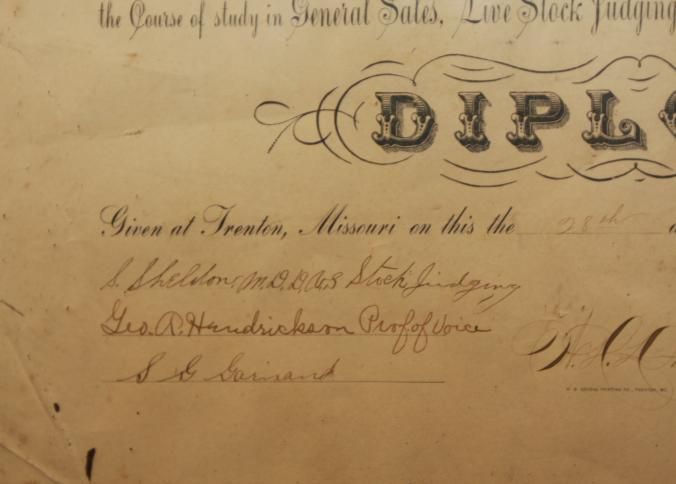 the Course of study in General Sales, Live Stock Judging
DIPLO
Given at Trenton, Missouri on this the 28th
S. Sheldon, M.D. Stock Judging
Geo. P. Hendrickson Prof of Voice
S G